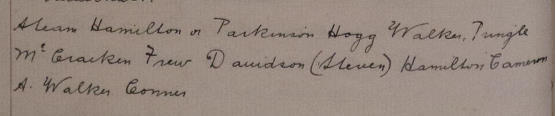 Steam Hamilton or Parkinson Hogg Walker, Pringle
Mc Cracken Frew Davidson (Steven) Hamilton Cameron
A. Walker Conner